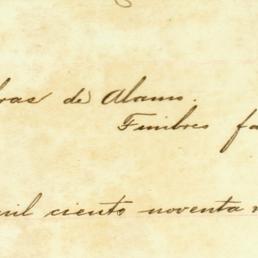 ras de Alamo.
Timbres fa
mil ciento noventa